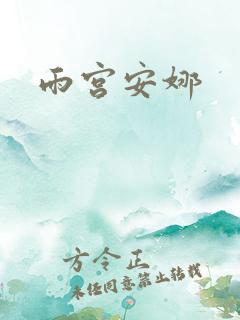 雨宫安娜
方令正
未经同意禁止转载